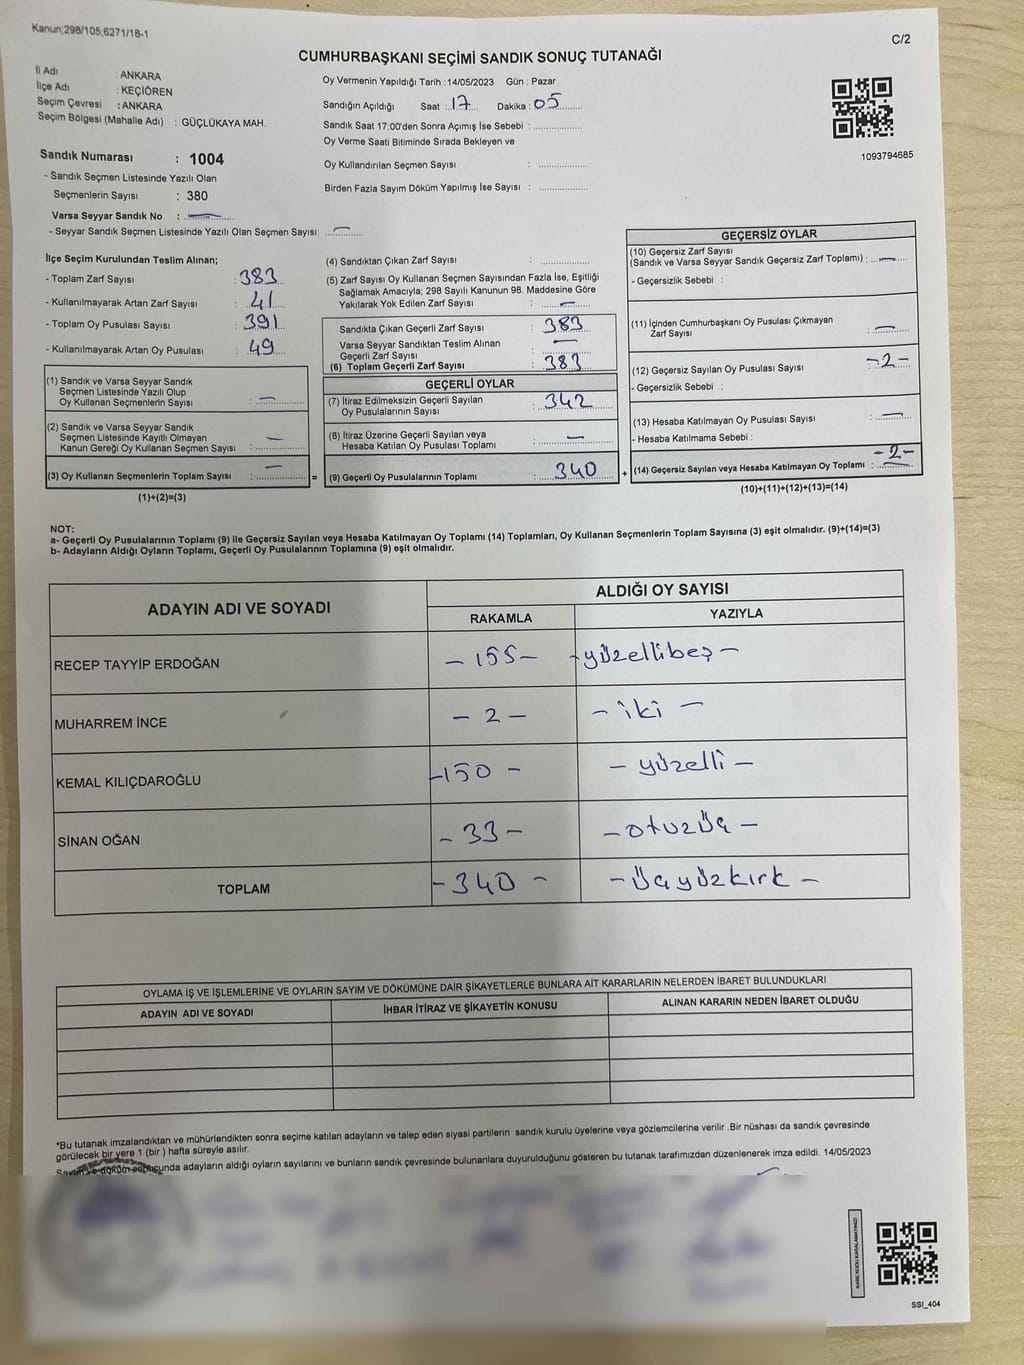 Kanun;298/105,6271/18-1
C/2
CUMHURBAŞKANI SEÇİMİ SANDIK SONUÇ TUTANAĞI
İl Adı : ANKARA
İlçe Adı : KEÇİÖREN
Seçim Çevresi : ANKARA
Seçim Bölgesi (Mahalle Adı) : GÜÇLÜKAYA MAH.
Sandık Numarası : 1004
- Sandık Seçmen Listesinde Yazılı Olan
Seçmenlerin Sayısı : 380
Varsa Seyyar Sandık No : —
- Seyyar Sandık Seçmen Listesinde Yazılı Olan Seçmen Sayısı: —
Oy Vermenin Yapıldığı Tarih : 14/05/2023 Gün : Pazar
Sandığın Açıldığı Saat : 17 Dakika : 05
Sandık Saat 17:00'den Sonra Açımış İse Sebebi :
Oy Verme Saati Bitiminde Sırada Bekleyen ve
Oy Kullandırılan Seçmen Sayısı :
Birden Fazla Sayım Döküm Yapılmış İse Sayısı :
1093794685
İlçe Seçim Kurulundan Teslim Alınan;
- Toplam Zarf Sayısı : 383
- Kullanılmayarak Artan Zarf Sayısı : 41
- Toplam Oy Pusulası Sayısı : 391
- Kullanılmayarak Artan Oy Pusulası : 49
(1) Sandık ve Varsa Seyyar Sandık
Seçmen Listesinde Yazılı Olup
Oy Kullanan Seçmenlerin Sayısı : —
(2) Sandık ve Varsa Seyyar Sandık
Seçmen Listesinde Kayıtlı Olmayan
Kanun Gereği Oy Kullanan Seçmen Sayısı : —
(3) Oy Kullanan Seçmenlerin Toplam Sayısı : — =
(1)+(2)=(3)
(4) Sandıktan Çıkan Zarf Sayısı :
(5) Zarf Sayısı Oy Kullanan Seçmen Sayısından Fazla İse, Eşitliği
Sağlamak Amacıyla; 298 Sayılı Kanunun 98. Maddesine Göre
Yakılarak Yok Edilen Zarf Sayısı : —
Sandıkta Çıkan Geçerli Zarf Sayısı : 383
Varsa Seyyar Sandıktan Teslim Alınan
Geçerli Zarf Sayısı : —
(6) Toplam Geçerli Zarf Sayısı : 383
GEÇERLİ OYLAR
(7) İtiraz Edilmeksizin Geçerli Sayılan
Oy Pusulalarının Sayısı : 342
(8) İtiraz Üzerine Geçerli Sayılan veya
Hesaba Katılan Oy Pusulası Toplamı : —
(9) Geçerli Oy Pusulalarının Toplamı : 340 +
GEÇERSİZ OYLAR
(10) Geçersiz Zarf Sayısı
(Sandık ve Varsa Seyyar Sandık Geçersiz Zarf Toplamı) : —
- Geçersizlik Sebebi :
(11) İçinden Cumhurbaşkanı Oy Pusulası Çıkmayan
Zarf Sayısı : —
(12) Geçersiz Sayılan Oy Pusulası Sayısı : -2-
- Geçersizlik Sebebi :
(13) Hesaba Katılmayan Oy Pusulası Sayısı : —
- Hesaba Katılmama Sebebi :
(14) Geçersiz Sayılan veya Hesaba Katılmayan Oy Toplamı : -2-
(10)+(11)+(12)+(13)=(14)
NOT:
a- Geçerli Oy Pusulalarının Toplamı (9) ile Geçersiz Sayılan veya Hesaba Katılmayan Oy Toplamı (14) Toplamları, Oy Kullanan Seçmenlerin Toplam Sayısına (3) eşit olmalıdır. (9)+(14)=(3)
b- Adayların Aldığı Oyların Toplamı, Geçerli Oy Pusulalarının Toplamına (9) eşit olmalıdır.
ADAYIN ADI VE SOYADI
ALDIĞI OY SAYISI
RAKAMLA YAZIYLA
RECEP TAYYİP ERDOĞAN - 155 - - yüzellibeş -
MUHARREM İNCE - 2 - - iki -
KEMAL KILIÇDAROĞLU - 150 - - yüzelli -
SİNAN OĞAN - 33 - - otuzüç -
TOPLAM - 340 - - üçyüzkırk -
OYLAMA İŞ VE İŞLEMLERİNE VE OYLARIN SAYIM VE DÖKÜMÜNE DAİR ŞİKAYETLERLE BUNLARA AİT KARARLARIN NELERDEN İBARET BULUNDUKLARI
ADAYIN ADI VE SOYADI İHBAR İTİRAZ VE ŞİKAYETİN KONUSU ALINAN KARARIN NEDEN İBARET OLDUĞU
*Bu tutanak imzalandıktan ve mühürlendikten sonra seçime katılan adayların ve talep eden siyasi partilerin sandık kurulu üyelerine veya gözlemcilerine verilir .Bir nüshası da sandık çevresinde
görülecek bir yere 1 (bir ) hafta süreyle asılır.
Sayım ve döküm sonucunda adayların aldığı oyların sayılarını ve bunların sandık çevresinde bulunanlara duyurulduğunu gösteren bu tutanak tarafımızdan düzenlenerek imza edildi. 14/05/2023
KARE KODU KARALAMAYINIZ!
SSI_404